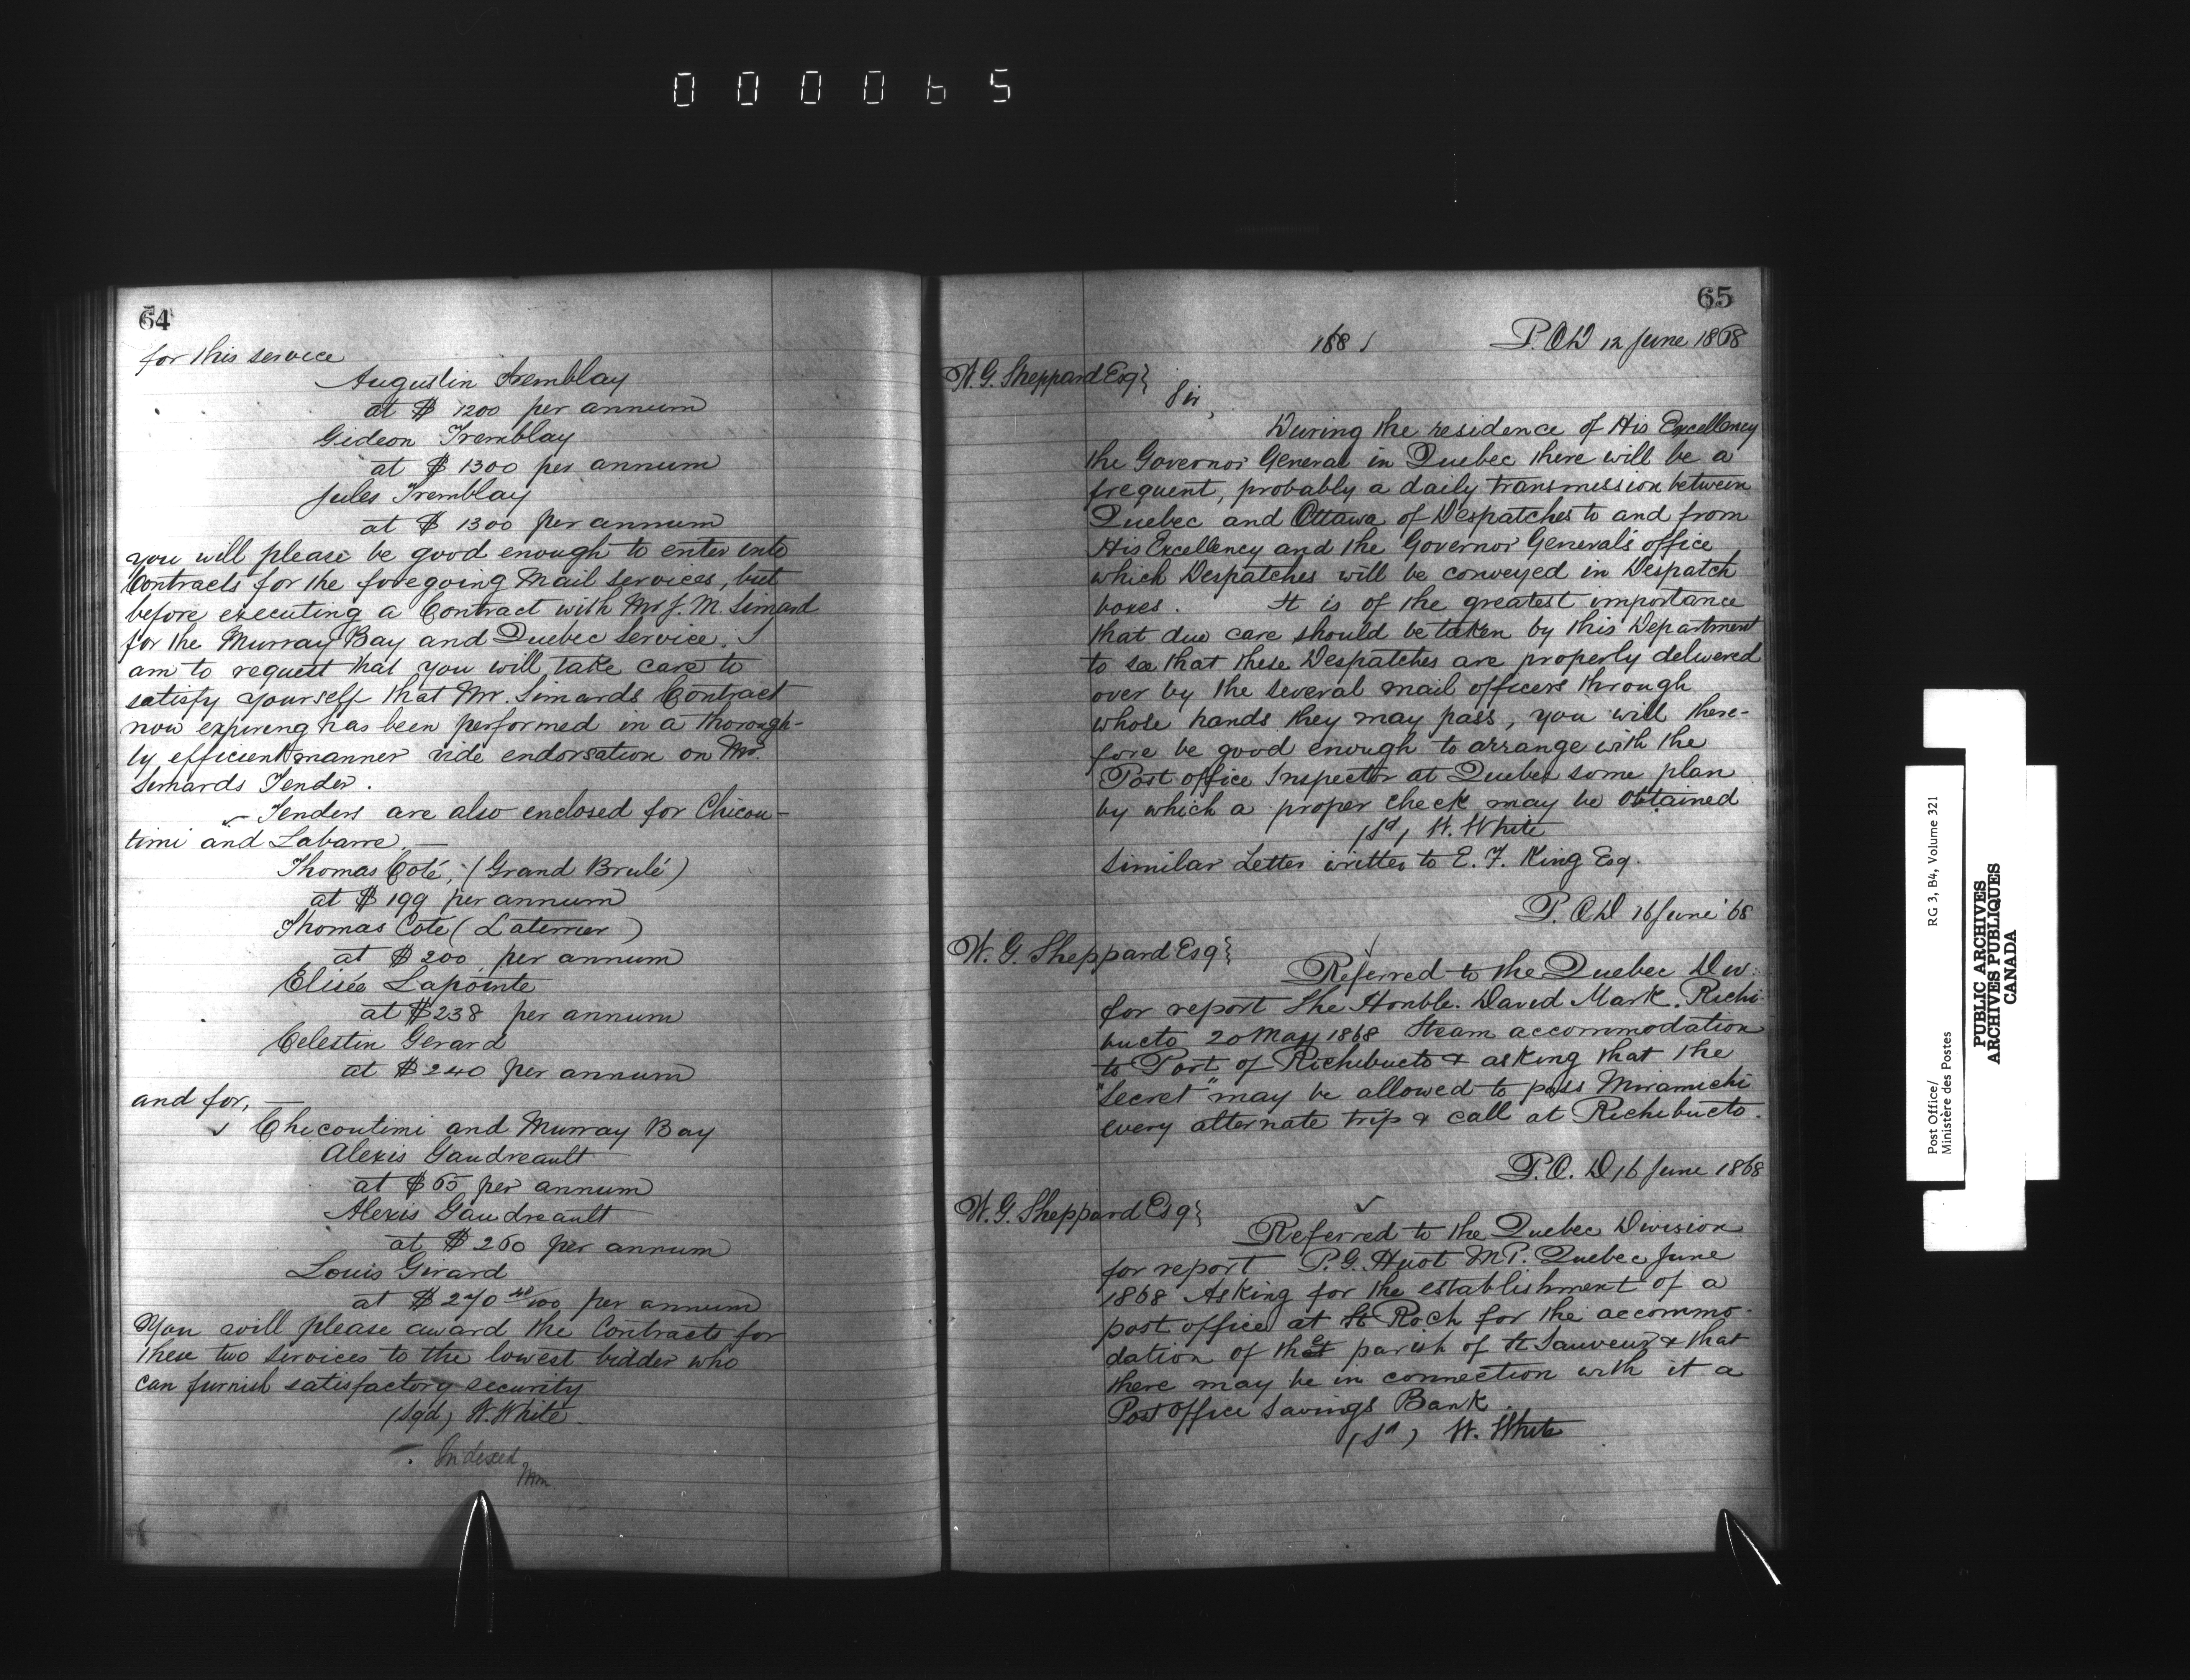 000065
64
for this service
Augustin Tremblay
at $ 1200 per annum
Gideon Tremblay
at $ 1300 per annum
Jules Tremblay
at $ 1300 per annum
you will please be good enough to enter into
Contracts for the foregoing Mail Services, but
before executing a Contract with Mr J. M. Simard
for the Murray Bay and Quebec Service. I
am to request that you will take care to
satisfy yourself that Mr. Simards Contract
now expiring has been performed in a thorough-
ly efficient manner vide endorsation on Mr.
Simards Tender.
✓ Tenders are also enclosed for Chicou-
timi and Labarre. —
Thomas Coté, (Grand Brulé)
at $ 199 per annum
Thomas Cote (Laterrier)
at $ 200 per annum
Elisée Lapointe
at $ 238 per annum
Celestin Gerard
at $ 240 per annum
and for, —
✓ Chicoutimi and Murray Bay
Alexis Gaudreault
at $ 65 per annum
Alexis Gaudreault
at $ 260 per annum
Louis Girard
at $ 270 40/100 per annum
You will please award the Contracts for
these two services to the lowest bidder who
can furnish satisfactory security
(Sgd) W. White.
Indexed
65
P. O. D 12 June 1868
W. G. Sheppard Esq}
Sir,
During the residence of His Excellency
the Governor General in Quebec there will be a
frequent, probably a daily transmission between
Quebec and Ottawa of Despatches to and from
His Excellency and the Governor General's office
which Despatches will be conveyed in Despatch
boxes. It is of the greatest importance
that due care should be taken by this Department
to see that these Despatches are properly delivered
over by the several mail officers through
whose hands they may pass, you will there-
fore be good enough to arrange with the
Post office Inspector at Quebec some plan
by which a proper check may be obtained
(Sd) W. White
Similar Letter written to E. F. King Esq.
P. O. D 16 June '68
W. G. Sheppard Esq}
✓
Referred to the Quebec Div:
for report The Honble. David Mark. Richi-
bucto 20 May 1868 Steam accommodation
to Port of Richibucto & asking that the
"Secret" may be allowed to pass Miramichi
every alternate trip & call at Richibucto.
P. O. D 16 June 1868
W. G. Sheppard Esq}
✓
Referred to the Quebec Division
for report P. G. Huot M.P. Quebec June
1868 Asking for the establishment of a
post office at St Roch for the accommo-
dation of the parish of St Sauveur & that
there may be in connection with it a
Post Office Savings Bank.
(Sd) W. White
Post Office/
Ministère des Postes
RG 3, B4, Volume 321
PUBLIC ARCHIVES
ARCHIVES PUBLIQUES
CANADA